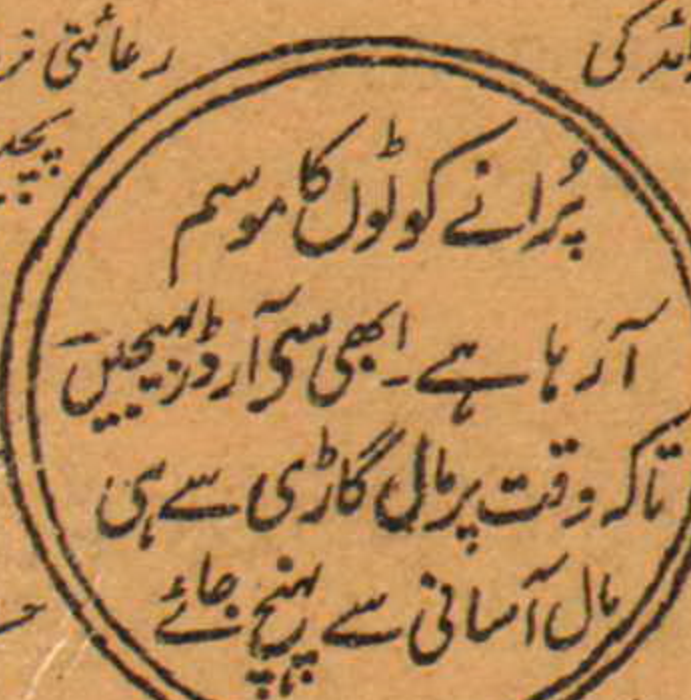 رعائتی
پُرانے کوٹوں کا موسم
آرہا ہے۔ ابھی سی آرڈر بھیجیں
تاکہ وقت پر مال گاڑی سے ہی
مال آسانی سے پہنچ جائے